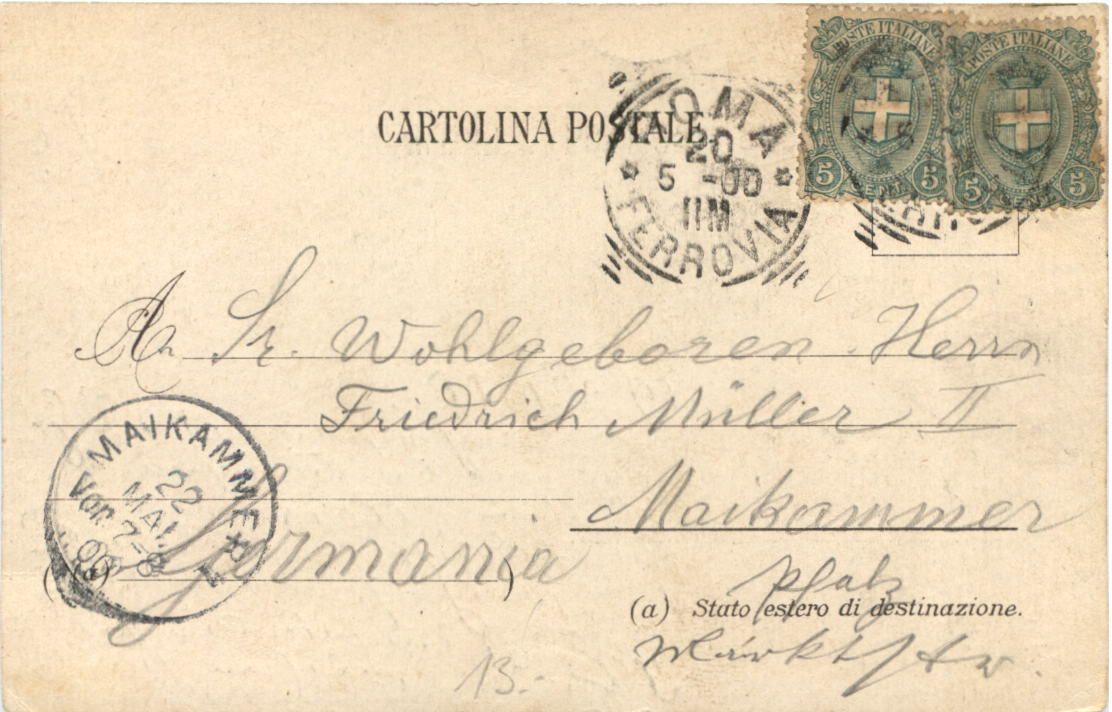 POSTE ITALIANE
POSTE ITALIANE
5 CENT. 5
5 CENT. 5
CARTOLINA POSTALE
ROMA
20
5 -00
11M
* FERROVIA *
A Sr. Wohlgeboren Herrn
Friedrich Müller II
Maikammer
MAIKAMMER
22
MAI.
Vor. 7-8
00
(a) Germania )
Pfalz
(a) Stato estero di destinazione.
13.-